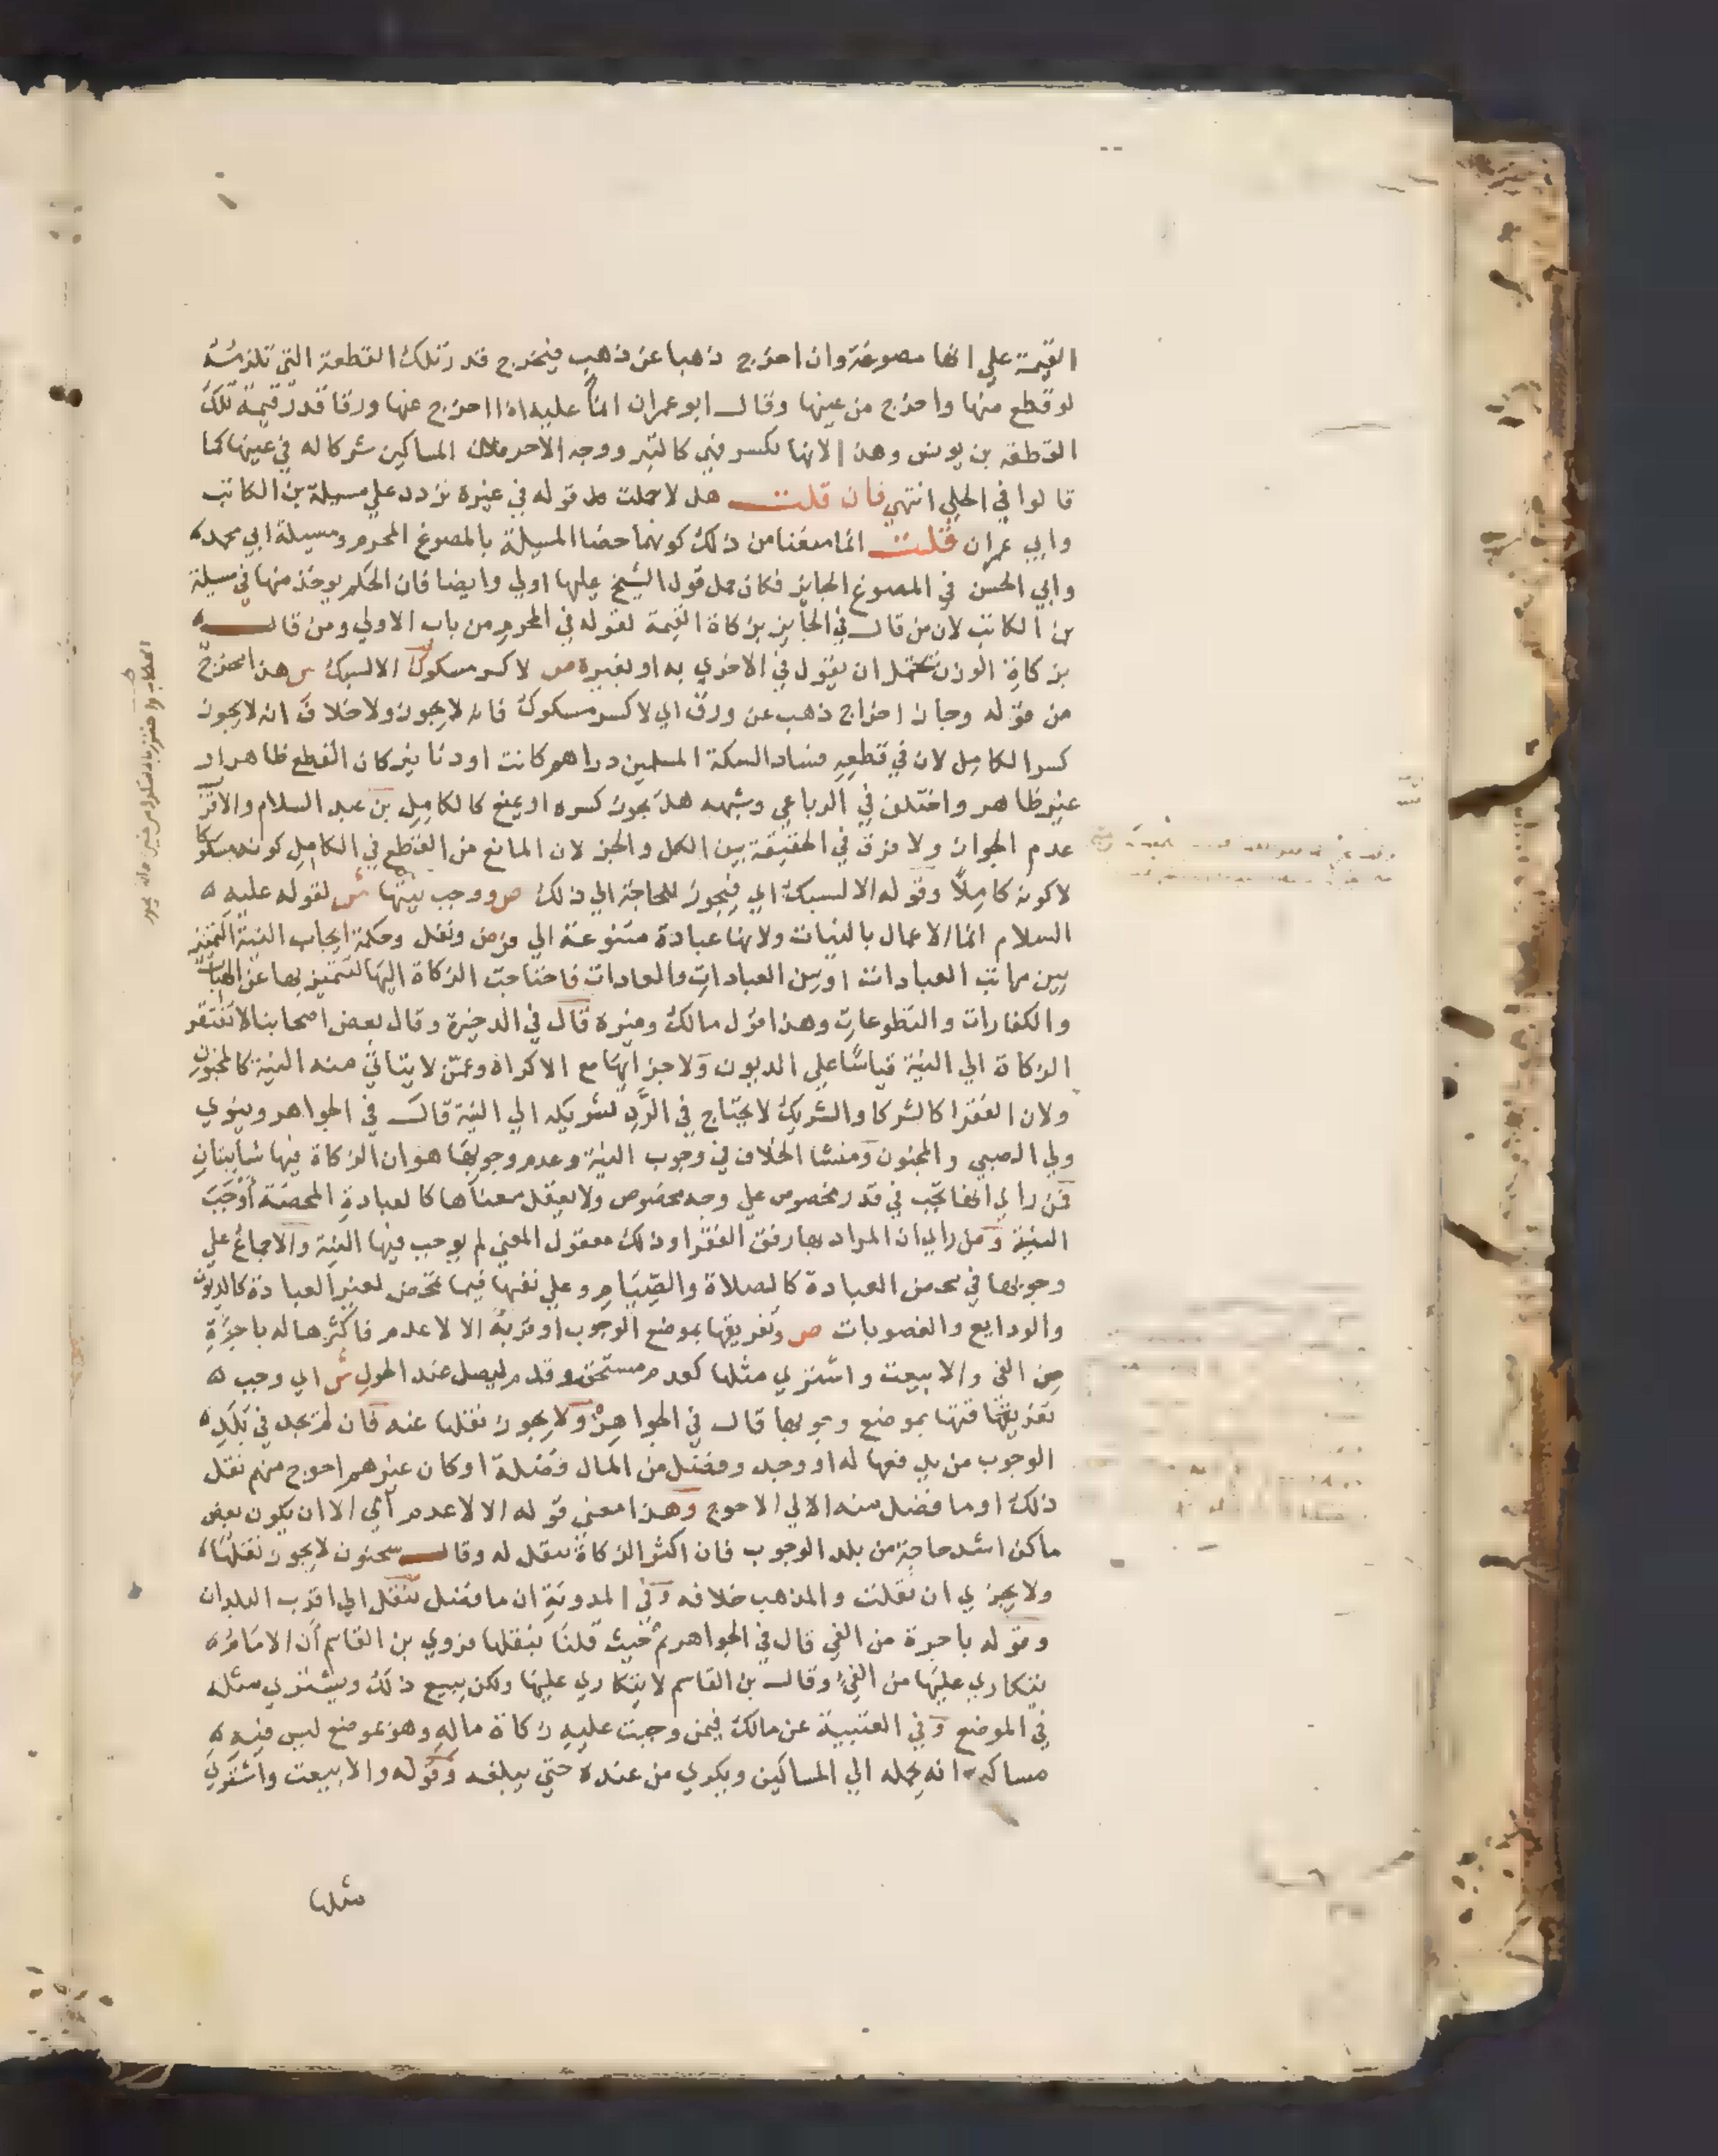 القيمة علي انها مصوغة وان اخرج ذهبا عن ذهب فيخرج قدر تلك القطعة التي تلزمه
لو قطع منها واخرج من عينها وقال ابو عمران انما عليه اذا اخرج عنها ورقا قدر قيمة تلك
القطعة بن يونس وهذا لانها تكسر فهي كالتبر ووجه الاخر فلان المساكين شركا له في عينها كما
قالوا في الحلي انتهي فان قلت هل لا حملت قوله في غيره تردد علي مسيلة بن الكاتب
وابي عمران قلت انما منعنا من ذلك كونهما خصا المسيلة بالمصوغ المحرم ومسيلة ابي محمد
وابي الحسن في المصوغ الجايز فكان حمل قول الشيخ عليها اولي وايضا فان الحكم يوخذ منها في مسيلة
بن الكاتب لان من قال في الجايز بزكاة القيمة لقوله في المحرم من باب الاولي ومن قال
بزكاة الوزن يحتمل ان يقول في الاخري به او بغيره ص لا كسر مسكوك الا لسبك ش هذا مخرج
من قوله وجاز اخراج ذهب عن ورق اي لا كسر مسكوك فانه لا يجوز ولا خلاف انه لا يجوز
كسر الكامل لان في قطعه فساد السكة المسلمين دراهم كانت او دنانير كان القطع ظاهر او
غير ظاهر واختلف في الرباعي وشبهه هل يجوز كسره او يمنع كالكامل بن عبد السلام والاقرب
عدم الجواز ولا فرق في الحقيقة بين الكل والجز لان المانع من القطع في الكامل كونه مسكوكا
لا كونه كاملا وقوله الا لسبك اي فيجوز للحاجة الي ذلك ص ووجب نيتها ش لقوله عليه
السلام انما الاعمال بالنيات ولانها عبادة متنوعة الي فرض ونفل وحكمة ايجاب النية التمييز
بين مراتب العبادات او بين العبادات والعادات فاحتاجت الزكاة اليها لتتميز بها عن الهبات
والكفارات والتطوعات وهذا قول مالك وغيره قال في الدخيرة وقال بعض اصحابنا لا تفتقر
الزكاة الي النية قياسا علي الديون ولاجزايها مع الاكراه وعمن لا يتاتي منه النية كالمجنون
ولان الفقرا كالشركا والشريك لا يحتاج في الرد لشريكه الي النية قال في الجواهر وينوي
ولي الصبي والمجنون ومنشا الخلاف في وجوب النية وعدم وجوبها هو ان الزكاة فيها شايبتان
فمن راي انها تجب في قدر مخصوص علي وجه مخصوص ولا يعقل معناها كالعبادة المحضة اوجب
النية ومن راي ان المراد بها رفق الفقرا وذلك معقول المعني لم يوجب فيها النية والاجماع علي
وجوبها في محض العبادة كالصلاة والصيام وعلي نفيها فيما تمحض لغير العبادة كالديون
والودايع والغصوبات ص وتفريقها بموضع الوجوب او قربه الا لاعدم فاكثرها له باجرة
من الفي والا بيعت واشتري مثلها كعدم مستحق وقدم ليصل عند الحول ش اي وجب
تفريقها بموضع وجوبها قال في الجواهر ولا يجوز نقلها عنه فان لم يجد في بلد
الوجوب من يدفعها له او وجد وفضل من المال فضلة او كان غيرهم احوج منهم نقل
ذلك او ما فضل منه الا لي الاحوج وهذا معني قوله الا لاعدم اي الا ان يكون بعض
ماكن اشد حاجة من بلد الوجوب فان اكثر الزكاة ينقل له وقال سحنون لا يجوز نقلها
ولا يجزي ان نقلت والمذهب خلافه وفي المدونة ان ما فضل ينقل الي اقرب البلدان
وقوله باجرة من الفي قال في الجواهر ثم حيث قلنا بنقلها فروي بن القاسم ان الامام
يتكاري عليها من الفي وقال بن القاسم لا يتكاري عليها ولكن يبيع ذلك ويشتري مثله
في الموضع وفي العتبية عن مالك فيمن وجبت عليه زكاة ماله وهو بموضع ليس فيه
مساكين انه يحمله الي المساكين ويكري من عنده حتي يبلغه وقوله والا بيعت واشتري
مثلها